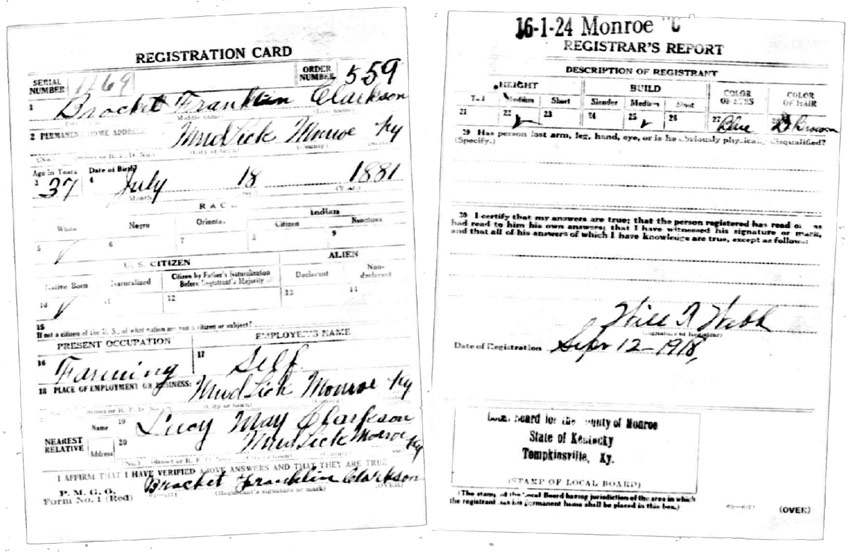 REGISTRATION CARD
SERIAL NUMBER 1169
ORDER NUMBER 559
1 Brocket Franklin Clarkson
2 PERMANENT HOME ADDRESS:
Mud Lick Monroe Ky
Age in Years
Date of Birth
3 37 4 July 18 1881
RACE
White Negro Oriental Indian
Citizen Noncitizen
5 ✓ 6 7 8 9
U. S. CITIZEN ALIEN
Native Born Naturalized Citizen by Father's Naturalization Before Registrant's Majority Declarant Non-declarant
10 ✓ 11 12 13 14
15
If not a citizen of the U. S., of what nation are you a citizen or subject?
PRESENT OCCUPATION EMPLOYER'S NAME
16 Farming 17 Self
18 PLACE OF EMPLOYMENT OR BUSINESS:
Mud Lick Monroe Ky
NEAREST RELATIVE
Name 19 Lucy May Clarkson
Address 20 Mud Lick Monroe Ky
I AFFIRM THAT I HAVE VERIFIED ABOVE ANSWERS AND THAT THEY ARE TRUE
P. M. G. O.
Form No. 1 (Red)
Brocket Franklin Clarkson
(Registrant's signature or mark) (OVER)
16-1-24 Monroe
REGISTRAR'S REPORT
DESCRIPTION OF REGISTRANT
HEIGHT BUILD COLOR OF EYES COLOR OF HAIR
Tall Medium Short Slender Medium Stout
21 22 ✓ 23 24 25 ✓ 26 27 Blue 28 D Brown
29 Has person lost arm, leg, hand, eye, or is he obviously physically disqualified?
(Specify.)
30 I certify that my answers are true; that the person registered has read or has
had read to him his own answers; that I have witnessed his signature or mark,
and that all of his answers of which I have knowledge are true, except as follows:
Will R Webb
(Signature of Registrar)
Date of Registration Sep 12-1918
Local Board for the County of Monroe
State of Kentucky
Tompkinsville, Ky.
(STAMP OF LOCAL BOARD)
(The stamp of the Local Board having jurisdiction of the area in which
the registrant has his permanent home shall be placed in this box.)
(OVER)